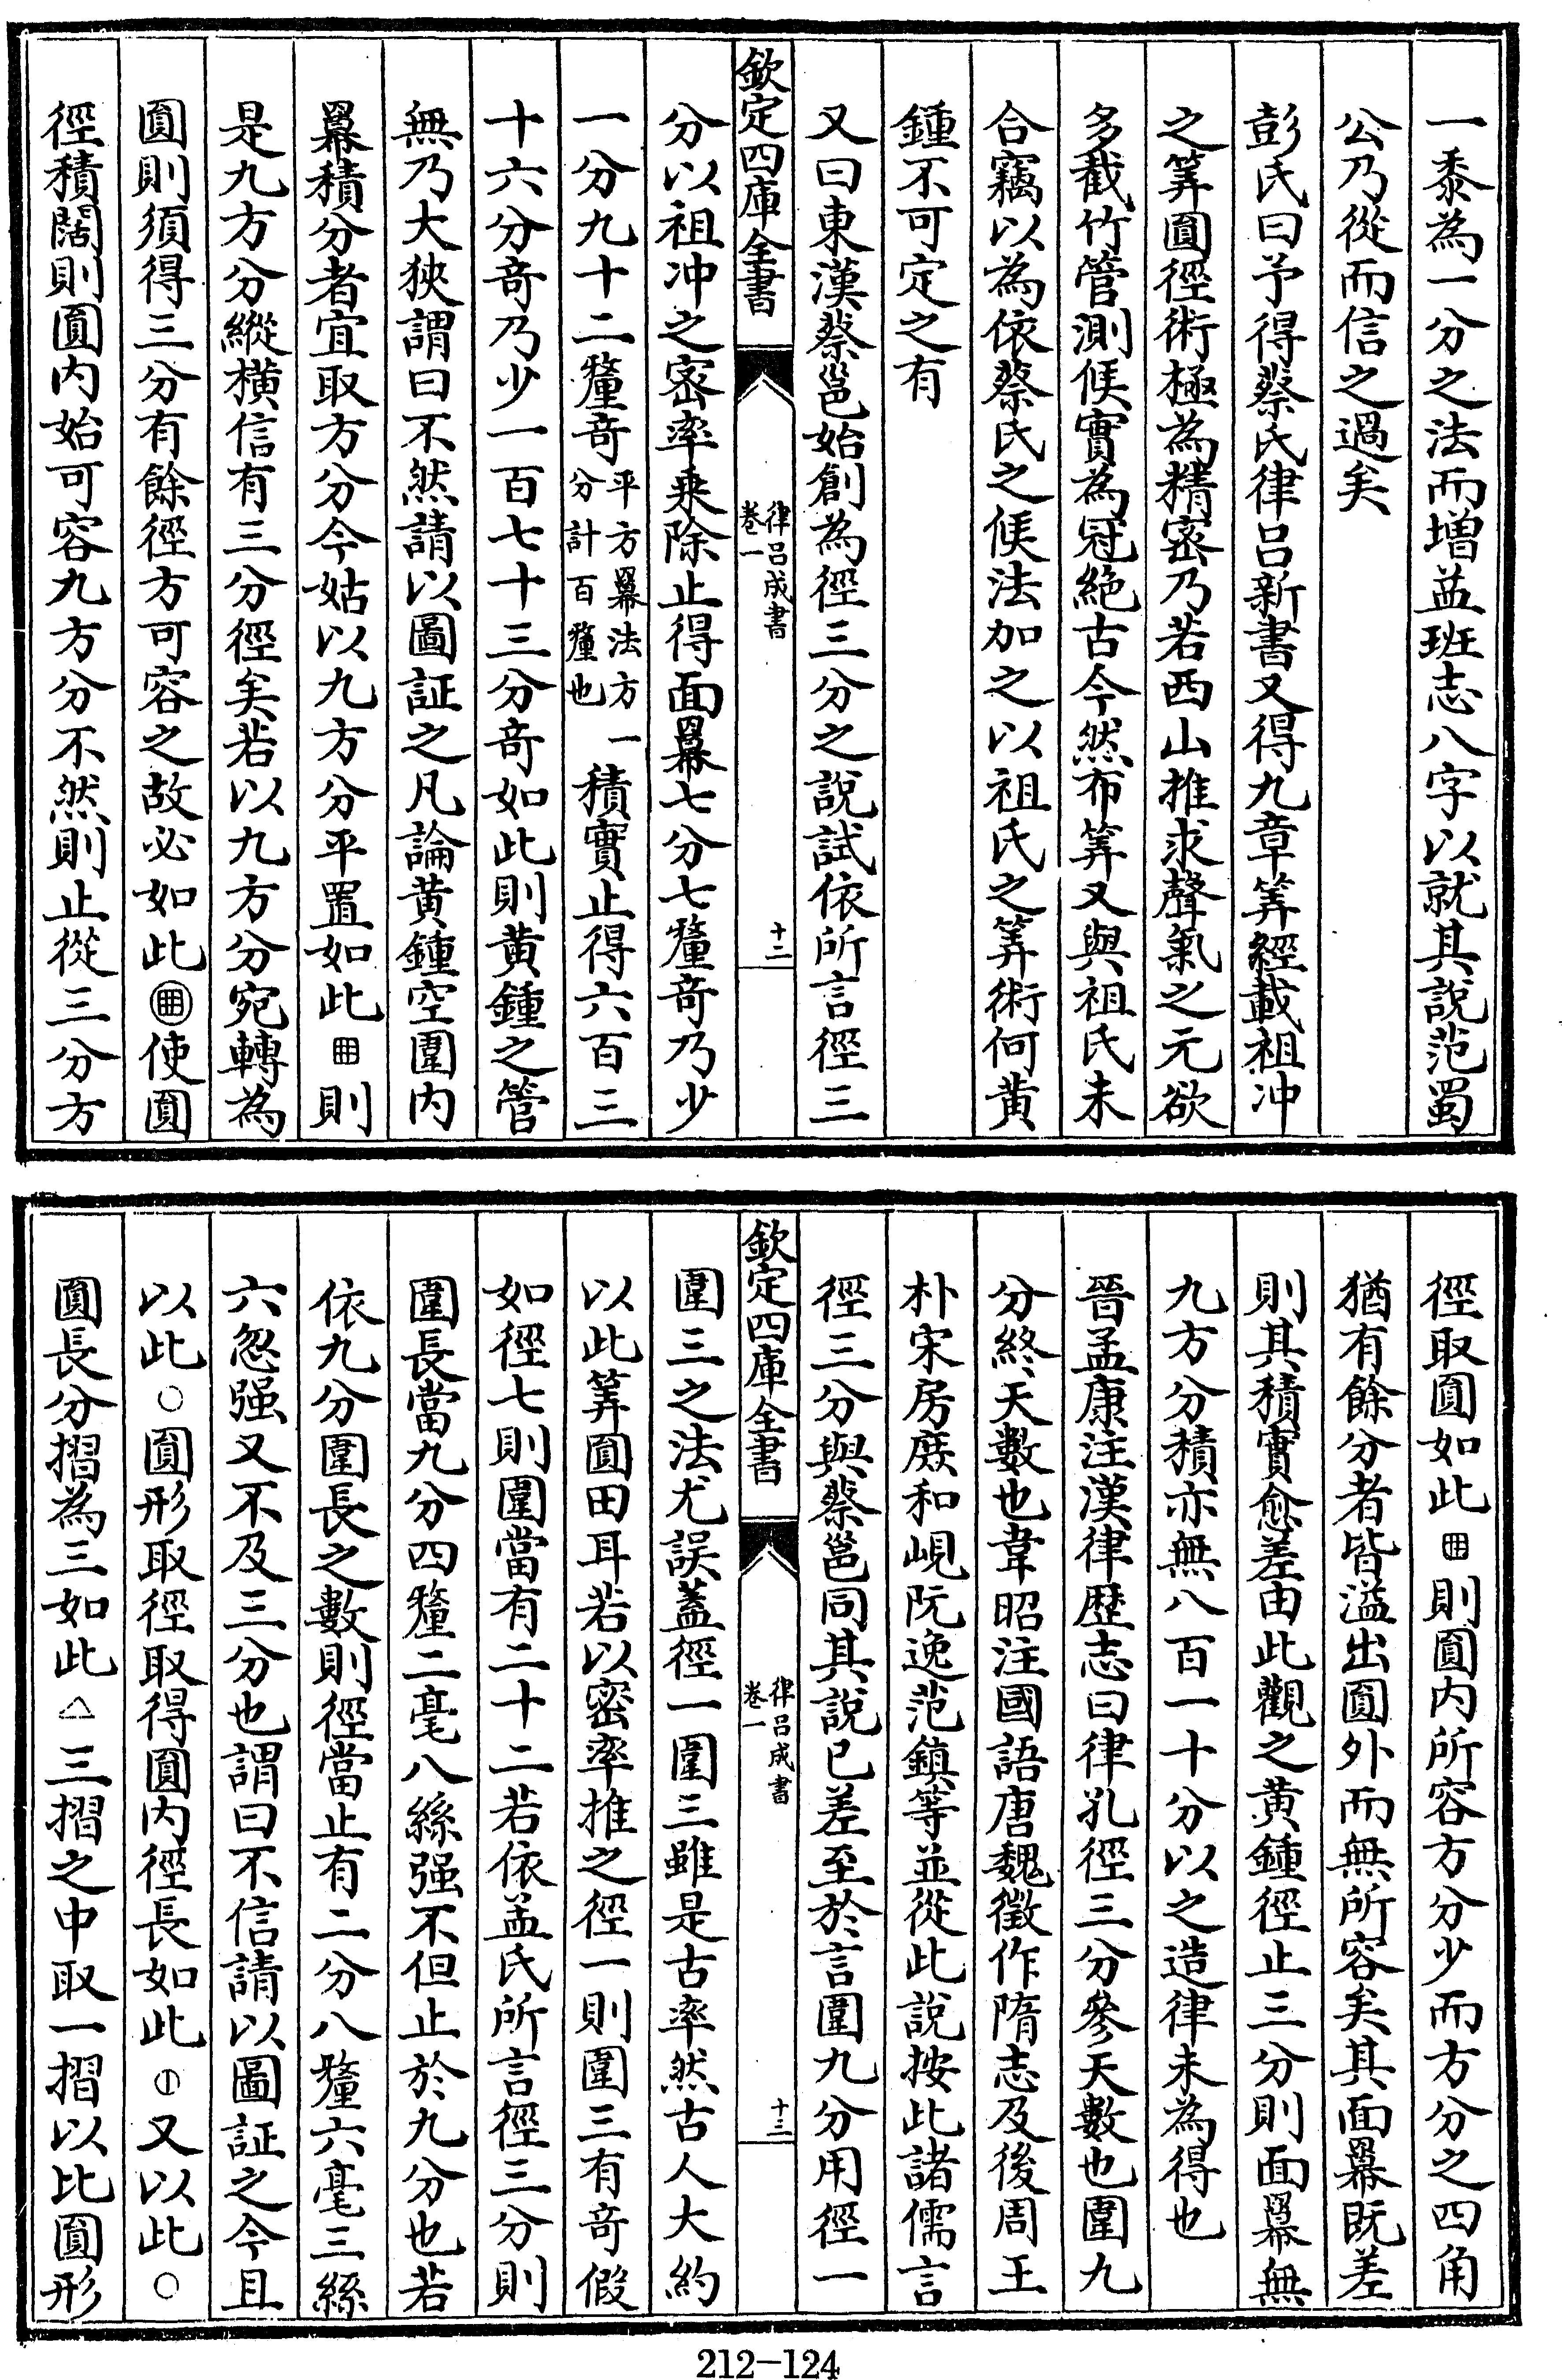 一黍為一分之法而增益班志八字以就其說范蜀
公乃從而信之過矣
彭氏曰予得蔡氏律吕新書又得九章筭經載祖冲
之筭圓徑術極為精密乃若西山推求聲氣之元欲
多截竹管測候實為冠絶古今然布筭又與祖氏未
合竊以為依蔡氏之候法加之以祖氏之筭術何黄
鍾不可定之有
又曰東漢蔡邕始創為徑三分之說試依所言徑三
欽定四庫全書
律吕成書
卷一
十二
分以祖冲之密率乗除止得面羃七分七釐竒乃少
一分九十二釐竒平方羃法方一分計百釐也積實止得六百三
十六分竒乃少一百七十三分竒如此則黄鍾之管
無乃大狹謂曰不然請以圖証之凡論黄鍾空圍内
羃積分者宜取方分今姑以九方分平置如此則
是九方分縱横信有三分徑矣若以九方分宛轉為
圓則須得三分有餘徑方可容之故必如此使圓
徑積闊則圓内始可容九方分不然則止從三分方
徑取圓如此則圓内所容方分少而方分之四角
猶有餘分者皆溢出圓外而無所容矣其面羃既差
則其積實愈差由此觀之黄鍾徑止三分則面羃無
九方分積亦無八百一十分以之造律未為得也
晉孟康注漢律歴志曰律孔徑三分參天數也圍九
分終天數也韋昭注國語唐魏徵作隋志及後周王
朴宋房庶和峴阮逸范鎮等並從此說按此諸儒言
徑三分與蔡邕同其說已差至於言圍九分用徑一
欽定四庫全書
律吕成書
卷一
十三
圍三之法尤誤蓋徑一圍三雖是古率然古人大約
以此筭圓田耳若以密率推之徑一則圍三有竒假
如徑七則圍當有二十二若依孟氏所言徑三分則
圍長當九分四釐二毫八絲强不但止於九分也若
依九分圍長之數則徑當止有二分八釐六毫三絲
六忽强又不及三分也謂曰不信請以圖証之今且
以此○圓形取徑取得圓内徑長如此又以此○
圓長分摺為三如此△三摺之中取一摺以比圓形
212-124